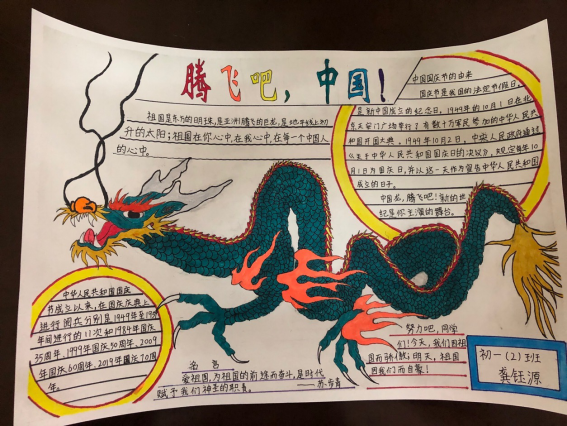 腾飞吧，中国！
祖国是东方的明珠，是亚洲腾飞的巨龙，是地平线上初
升的太阳；祖国在你心中，在我心中，在每一个中国人
的心中。
中国国庆节的由来
国庆节是我国的法定节假日，
是新中国成立的纪念日，1949年的10月1日在北
京天安门广场举行了有数十万军民参加的中华人民共
和国开国大典。1949年10月2日，中央人民政府通过
《关于中华人民共和国国庆日的决议》，规定每年10
月1日为国庆日，并以这一天作为宣告中华人民共和国
成立的日子。
中国龙，腾飞吧！新的世
纪是你主演的舞台。
中华人民共和国国庆
节成立以来，在国庆庆典上
进行阅兵分别是1949年至1959
年间进行的11次和1984年国庆
35周年、1999年国庆50周年、2009
年国庆60周年、2019年国庆70周
年。
名言
爱祖国，为祖国的前途而奋斗，是时代
赋予我们神圣的职责。——苏步青
努力吧，同学
们！今天，我们因祖
国而骄傲；明天，祖国
因我们而自豪！
初一（2）班
龚钰源